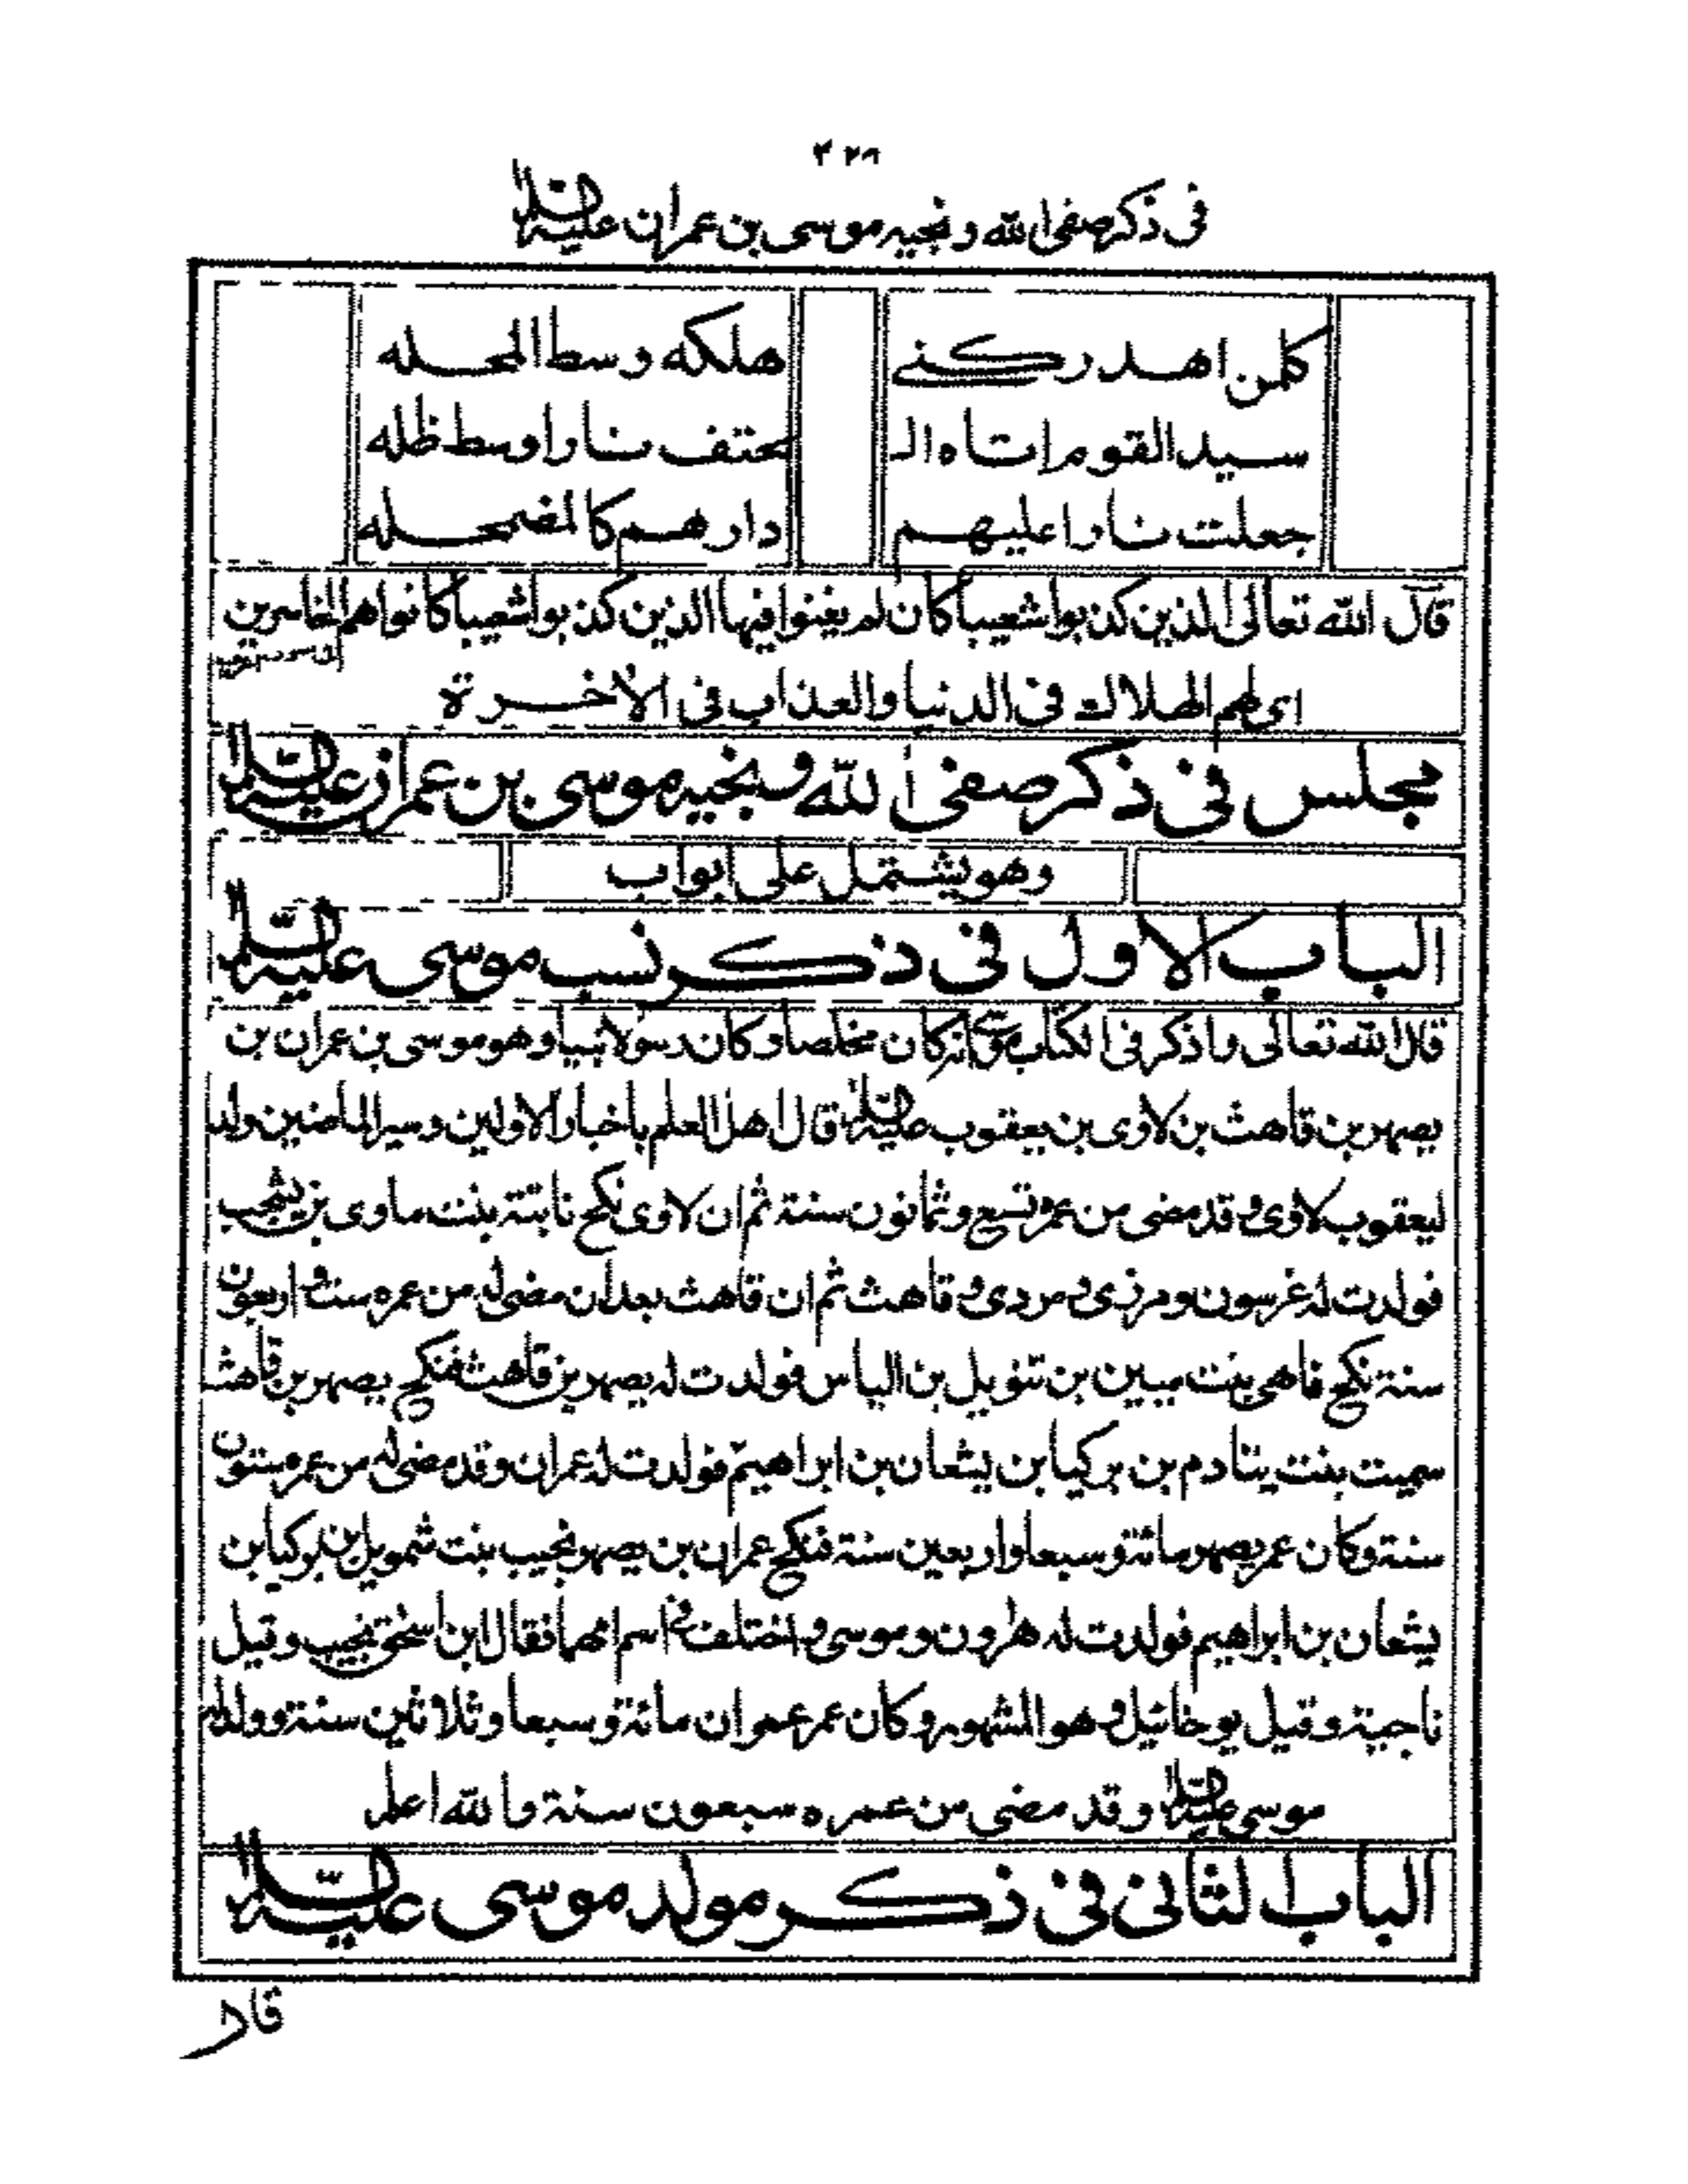 ٢٢٨
فى ذكر صفى الله ونجيه موسى بن عمران عليه السلام
كلمن اهد ركنے هلكه وسط المحله
سيد القوم اتاه الـ حتف نارا وسط ظله
جعلت نارا عليهم دارهم كالمضمحله
قال الله تعالى الذين كذبوا شعيبا كان لم يغنوا فيها الذين كذبوا شعيبا كانوا هم الخاسرين
اى لهم الهلاك فى الدنيا والعذاب فى الاخرة
مجلس فى ذكر صفى الله ونجيه موسى بن عمران عليه السلام
وهو يشتمل على ابواب
الباب الاول فى ذكر نسب موسى عليه السلام
قال الله تعالى واذكر فى الكتاب موسى انه كان مخلصا وكان رسولا نبيا وهو موسى بن عمران بن
يصهر بن قاهث بن لاوى بن يعقوب عليه السلام قال اهل العلم باخبار الاولين وسير الماضين ولد
ليعقوب لاوى وقد مضى من عمره تسع وثمانون سنة ثم ان لاوى نكح نابتة بنت ماوى بن يشجب
فولدت له غرسون ومرزى ومردى وقاهث ثم ان قاهث بعد ان مضى له من عمره ست واربعون
سنة نكح فاهى بنت مبين بن تنويل بن الياس فولدت له يصهر بن قاهث فنكح يصهر بن قاهث
سميت بنت يتادم بن بركيا بن يشعان بن ابراهيم فولدت له عمران وقد مضى له من عمره ستون
سنة وكان عمر يصهر مائة وسبعا واربعين سنة فنكح عمران بن يصهر نجيب بنت شمويل بن بركيا بن
يشعان بن ابراهيم فولدت له هارون وموسى واختلف فى اسم امهما فقال ابن اسحق نجيب وقيل
ناجية وقيل يوخائيل وهو المشهور وكان عمر عمران مائة وسبعا وثلاثين سنة وولد له
موسى عليه السلام وقد مضى من عمره سبعون سنة والله اعلم
الباب الثانى فى ذكر مولد موسى عليه السلام
قال